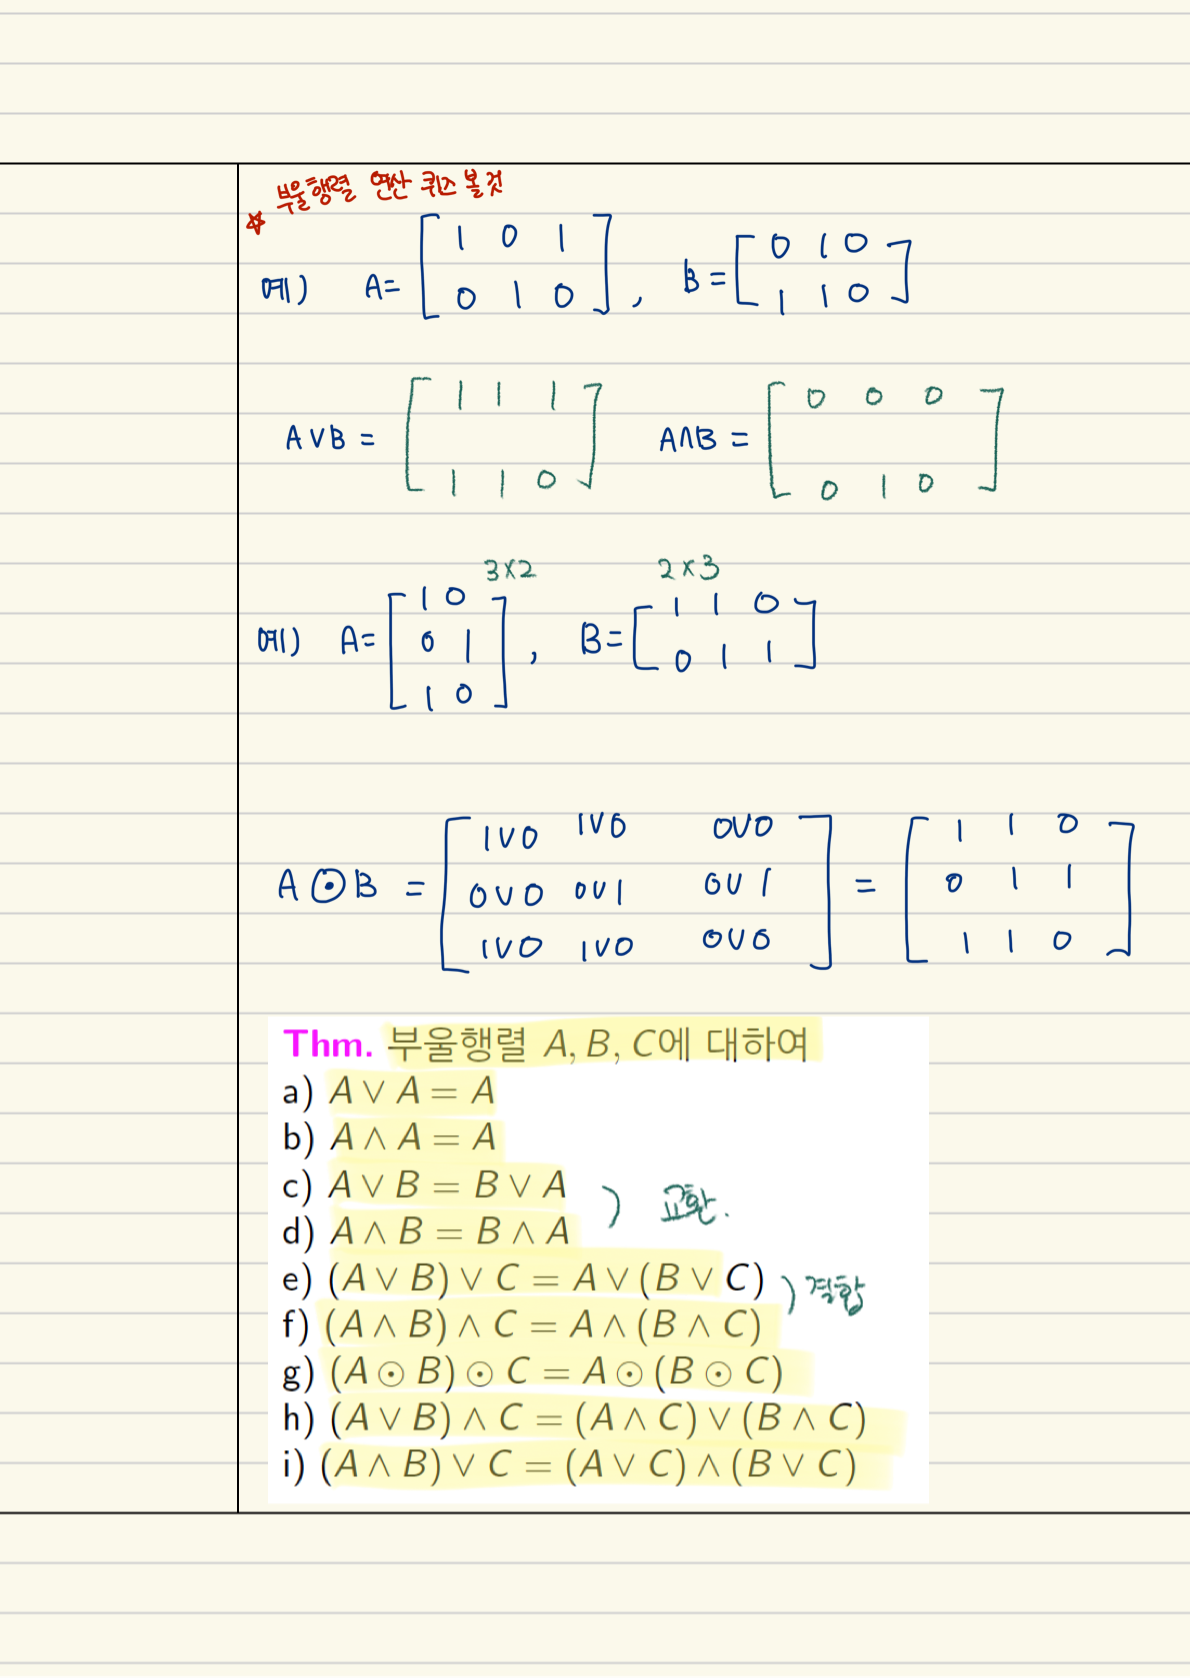 ☆ 부울행렬 연산 퀴즈 볼것
예) A= [ 1 0 1
0 1 0 ] , B = [ 0 1 0
1 1 0 ]
A∨B = [ 1 1 1
1 1 0 ] A∧B = [ 0 0 0
0 1 0 ]
3×2 2×3
예) A= [ 1 0
0 1
1 0 ] , B= [ 1 1 0
0 1 1 ]
A⊙B = [ 1∨0 1∨0 0∨0
0∨0 0∨1 0∨1
1∨0 1∨0 0∨0 ] = [ 1 1 0
0 1 1
1 1 0 ]
Thm. 부울행렬 A, B, C에 대하여
a) A ∨ A = A
b) A ∧ A = A
c) A ∨ B = B ∨ A
d) A ∧ B = B ∧ A
) 교환.
e) (A ∨ B) ∨ C = A ∨ (B ∨ C)
f) (A ∧ B) ∧ C = A ∧ (B ∧ C)
) 결합
g) (A ⊙ B) ⊙ C = A ⊙ (B ⊙ C)
h) (A ∨ B) ∧ C = (A ∧ C) ∨ (B ∧ C)
i) (A ∧ B) ∨ C = (A ∨ C) ∧ (B ∨ C)